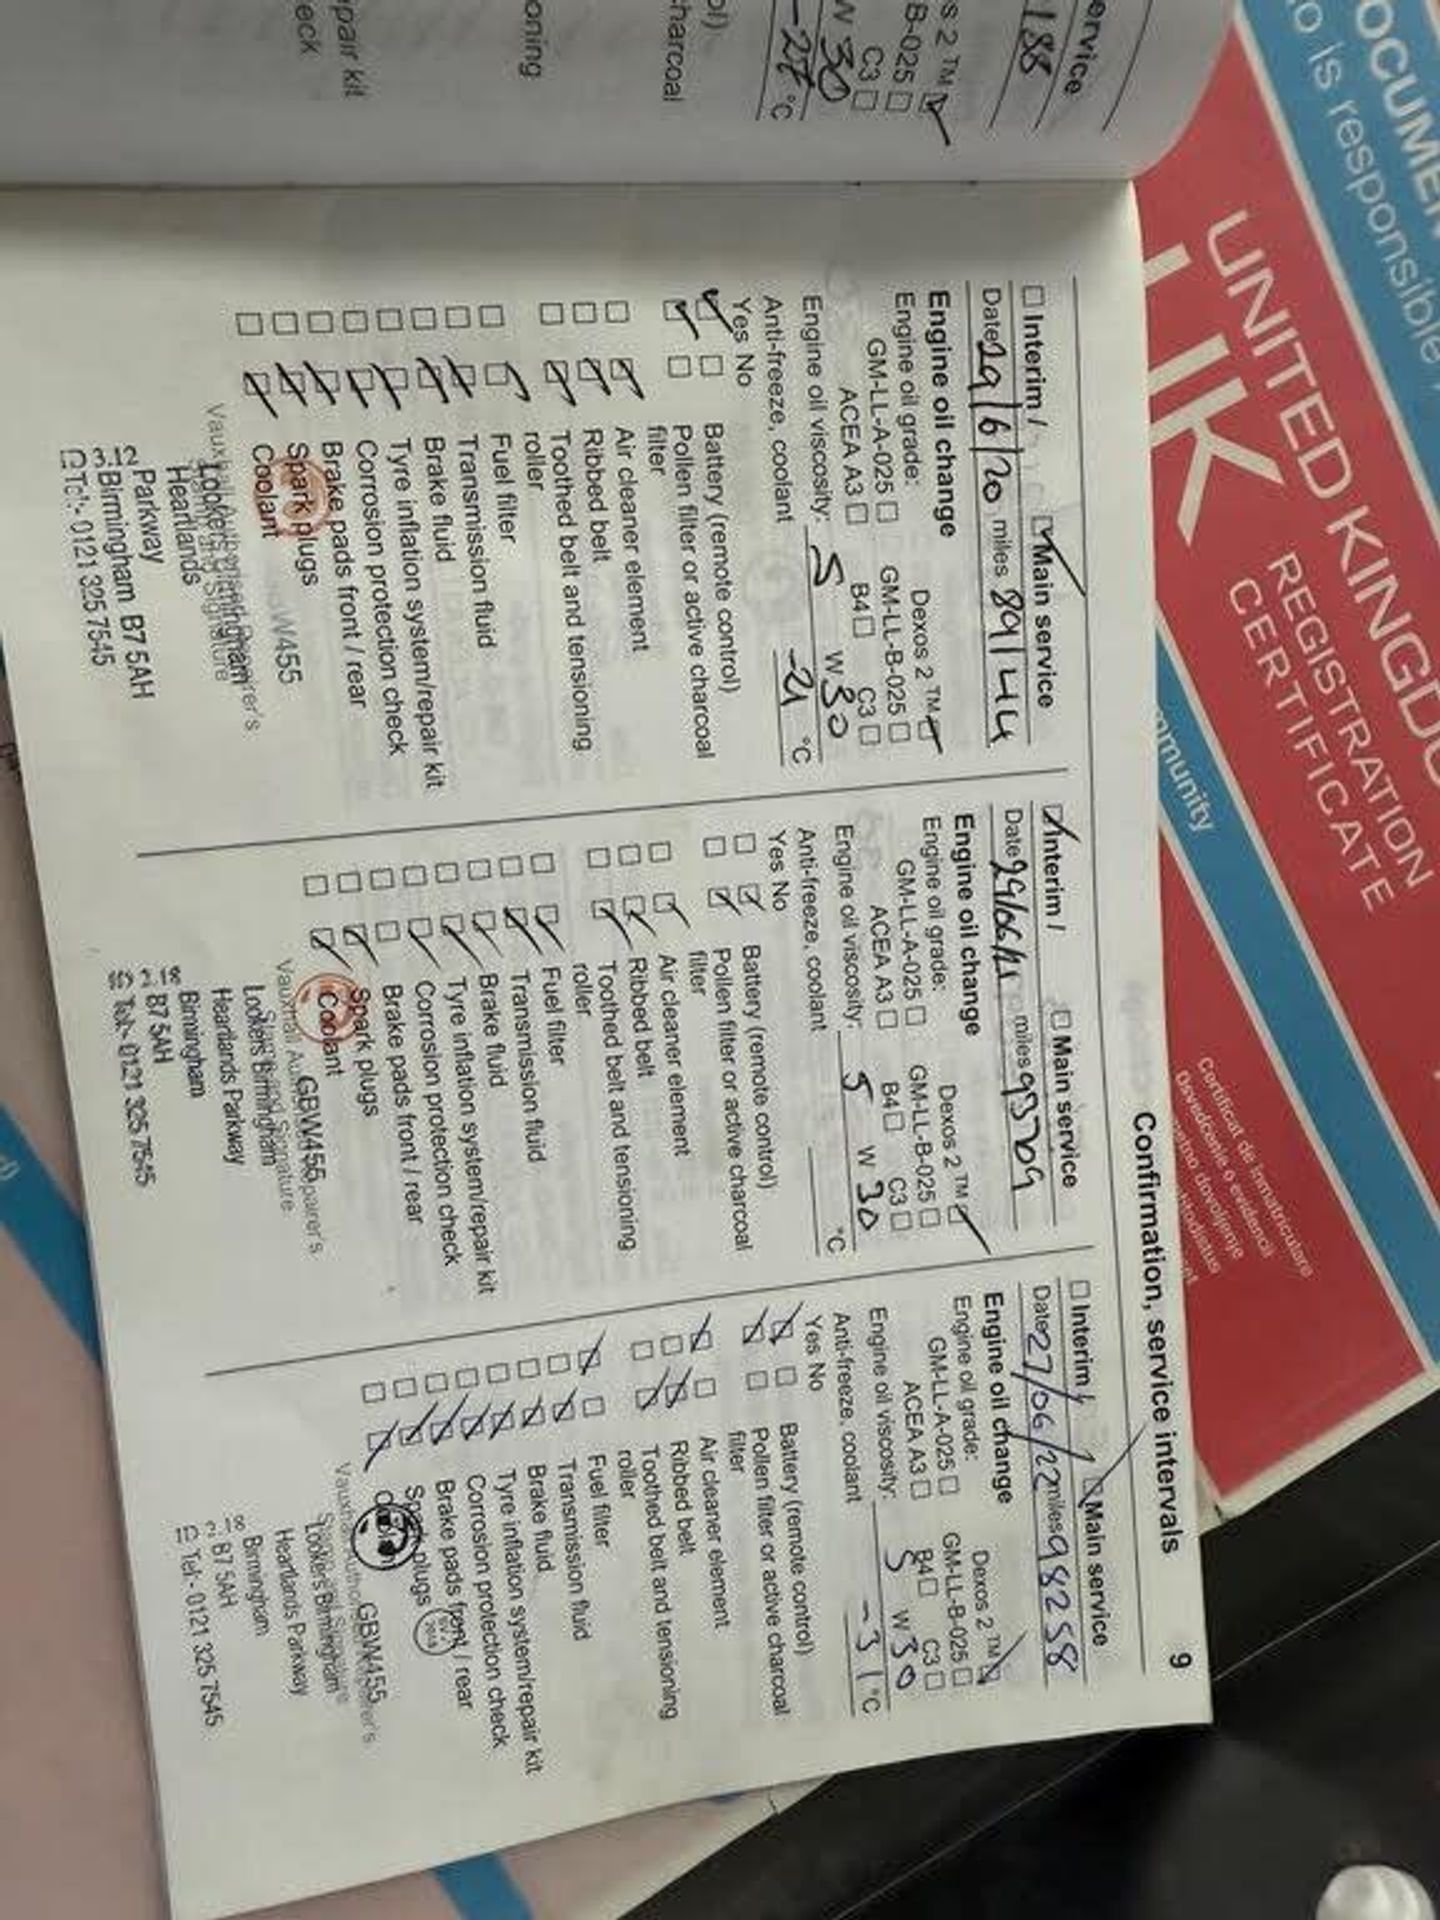 Confirmation, service intervals
9
ervice
188
s 2 ™
B-025
C3
W 30
-27 °C
ol)
harcoal
oning
pair kit
eck
Interim / Main service
Date 29/6/20 miles 89144
Engine oil change
Engine oil grade: Dexos 2 ™
GM-LL-A-025 GM-LL-B-025
ACEA A3 B4 C3
Engine oil viscosity: 5 W 30
Anti-freeze, coolant -21 °C
Yes No
Battery (remote control)
Pollen filter or active charcoal
filter
Air cleaner element
Ribbed belt
Toothed belt and tensioning
roller
Fuel filter
Transmission fluid
Brake fluid
Tyre inflation system/repair kit
Corrosion protection check
Brake pads front / rear
Spark plugs
Coolant
Heartlands
Parkway
Birmingham B7 5AH
0121 325 7545
Interim / Main service
Date miles 93709
Engine oil change
Engine oil grade: Dexos 2 ™
GM-LL-A-025 GM-LL-B-025
ACEA A3 B4 C3
Engine oil viscosity: 5 W 30
Anti-freeze, coolant °C
Yes No
Battery (remote control)
Pollen filter or active charcoal
filter
Air cleaner element
Ribbed belt
Toothed belt and tensioning
roller
Fuel filter
Transmission fluid
Brake fluid
Tyre inflation system/repair kit
Corrosion protection check
Brake pads front / rear
Spark plugs
Coolant
GBW455
Lookers Birmingham
Heartlands Parkway
Birmingham
B7 5AH
Tel:- 0121 325 7545
Interim / Main service
Date 27/06/22 miles 98258
Engine oil change
Engine oil grade: Dexos 2 ™
GM-LL-A-025 GM-LL-B-025
ACEA A3 B4 C3
Engine oil viscosity: 5 W 30
Anti-freeze, coolant -31 °C
Yes No
Battery (remote control)
Pollen filter or active charcoal
filter
Air cleaner element
Ribbed belt
Toothed belt and tensioning
roller
Fuel filter
Transmission fluid
Brake fluid
Tyre inflation system/repair kit
Corrosion protection check
Brake pads front / rear
Spark plugs
GBW455
Lookers Birmingham
Heartlands Parkway
Birmingham
B7 5AH
Tel:- 0121 325 7545
OCUMEN
o is responsible
UNITED KINGDO
UK
REGISTRATION
CERTIFICATE
mmunity
Certificat de înmatriculare